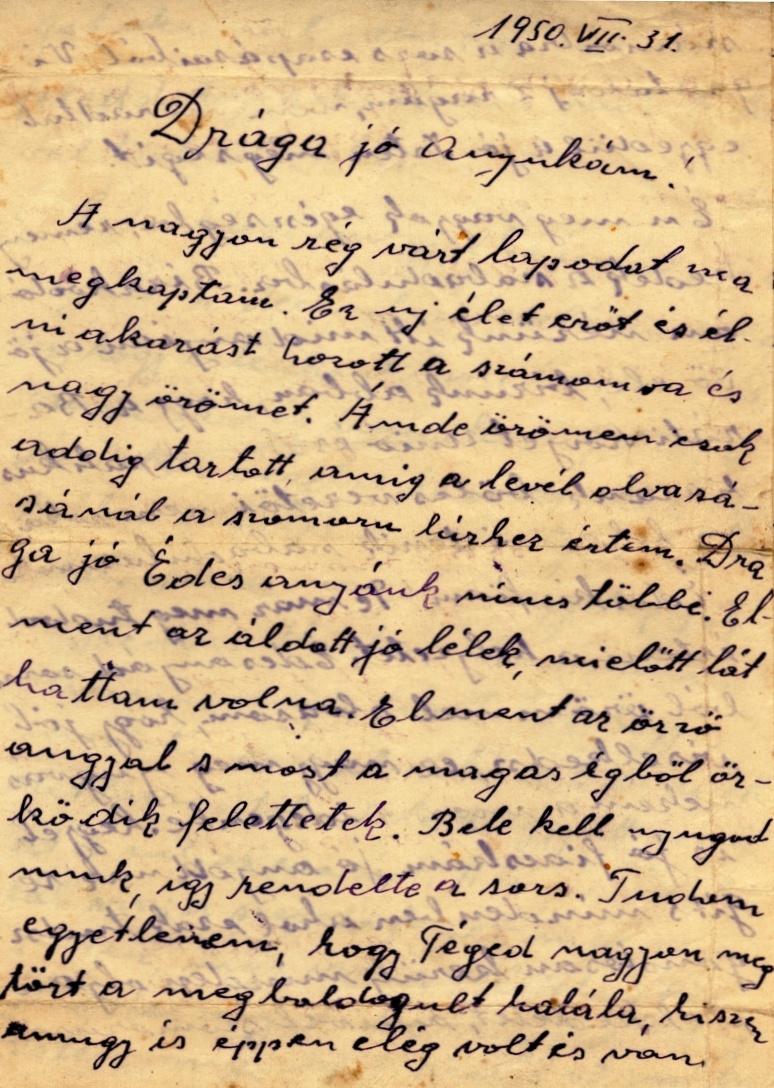 1950. VII. 31.
Drága jó Anyukám!
A nagyon rég várt lapodat ma
megkaptam. Ez uj élet erőt és él-
ni akarást hozott a számomra és
nagy örömet. Ámde örömem csak
addig tartott, amig a levél olvasá-
sánál a szomoru hirhez értem. Drá
ga jó Édes anyánk nincs többé. El-
ment az áldott jó lélek, mielőtt lát
hattam volna. Elment az őrző
angyal s most a magas égből őr-
ködik felettetek. Bele kell nyugod
nunk, igy rendelte a sors. Tudom
egyetlenem, hogy Téged nagyon meg
tört a megboldogult halála, hiszen
amugy is éppen elég volt és van